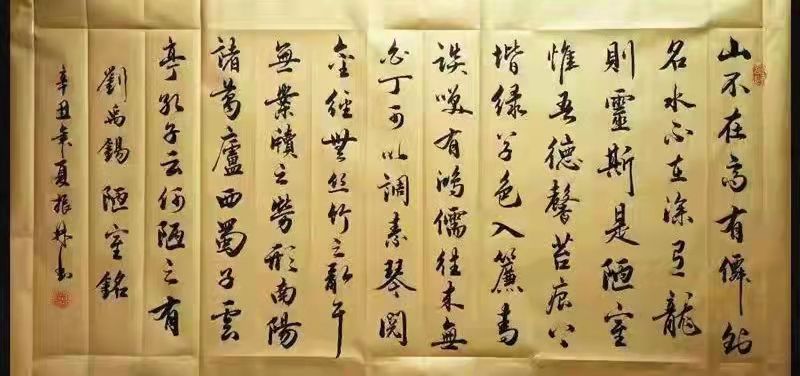 山不在高有僊則
名水不在深有龍
則靈斯是陋室
惟吾德馨苔痕上
堦绿草色入簾青
談笑有鴻儒往来無
白丁可以調素琴閱
金經無丝竹之亂耳
無案牘之勞形南陽
諸葛廬西蜀子雲
亭孔子云何陋之有
劉禹錫陋室銘
辛丑年夏振林書